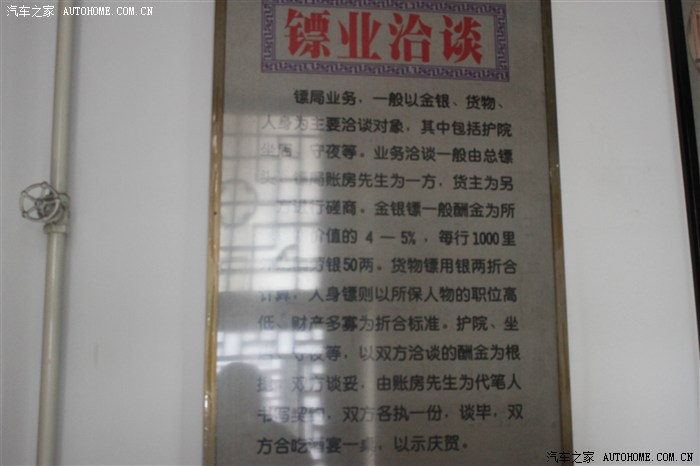 汽车之家 AUTOHOME.COM.CN
镖业洽谈
镖局业务，一般以金银、货物、
人身为主要洽谈对象，其中包括护院
坐店、守夜等。业务洽谈一般由总镖
头 镖局账房先生为一方，货主为另
进行磋商。金银镖一般酬金为所
价值的 4 — 5%，每行1000里
劳银50两。货物镖用银两折合
计算，人身镖则以所保人物的职位高
低、财产多寡为折合标准。护院、坐
守夜等，以双方洽谈的酬金为根
双方谈妥，由账房先生为代笔人
书写契约，双方各执一份，谈毕，双
方合吃酒宴一桌，以示庆贺。
汽车之家 AUTOHOME.COM.CN